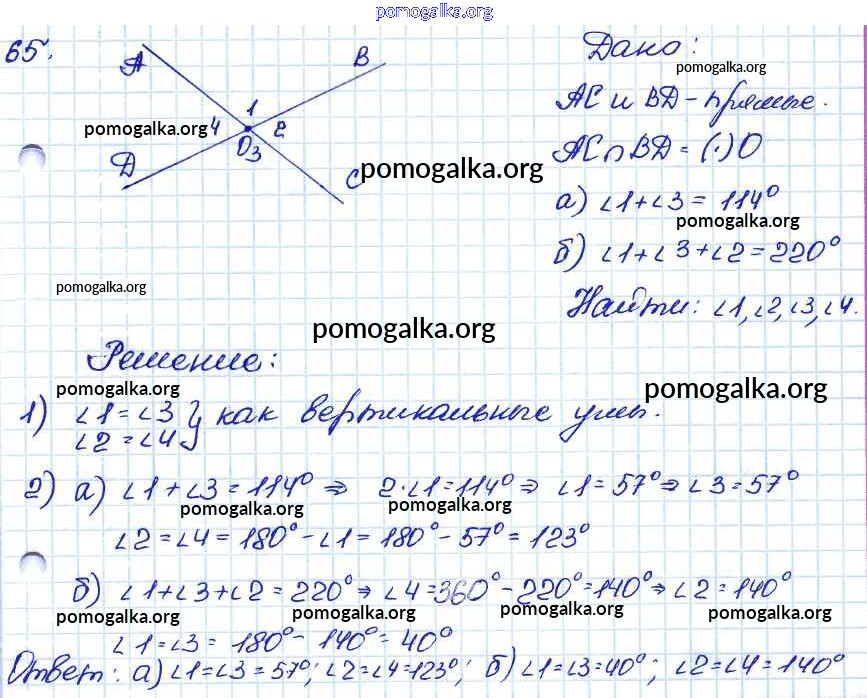 pomogalka.org
65.
A
B
Дано:
pomogalka.org
1
AC и BD - прямые.
pomogalka.org 4
2
O 3
D
C
pomogalka.org
AC∩BD = (·)O
а) ∠1+∠3 = 114°
pomogalka.org
б) ∠1+∠3+∠2=220°
pomogalka.org
Найти: ∠1, ∠2, ∠3, ∠4.
pomogalka.org
Решение:
pomogalka.org
pomogalka.org
1) ∠1=∠3 } как вертикальные углы.
∠2=∠4
2) а) ∠1+∠3=114° ⇒ 2·∠1=114° ⇒ ∠1=57° ⇒ ∠3=57°
pomogalka.org
pomogalka.org
∠2=∠4=180°-∠1=180°-57°=123°
б) ∠1+∠3+∠2=220° ⇒ ∠4=360°-220°=140° ⇒ ∠2=140°
pomogalka.org pomogalka.org pomogalka.org pomogalka.org
∠1=∠3=180°-140°=40°
Ответ: а) ∠1=∠3=57°; ∠2=∠4=123°; б) ∠1=∠3=40°; ∠2=∠4=140°